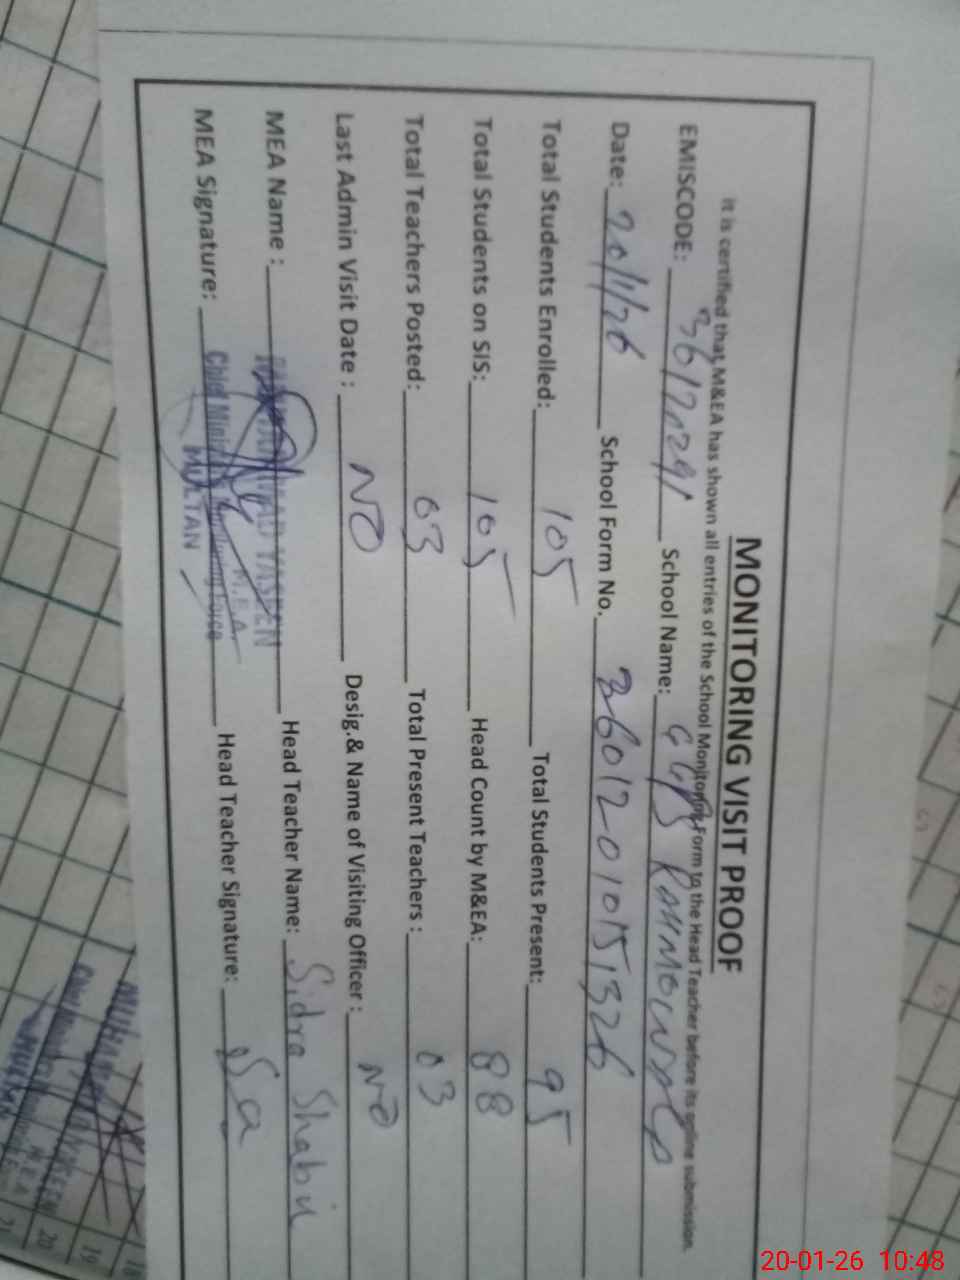 MONITORING VISIT PROOF
It is certified that M&EA has shown all entries of the School Monitoring Form to the Head Teacher before its online submission.
EMISCODE: School Name:
Date: 20/1/26 School Form No. 36012010151326
Total Students Enrolled: 105 Total Students Present: 95
Total Students on SIS: 105 Head Count by M&EA: 88
Total Teachers Posted: 03 Total Present Teachers : 03
Last Admin Visit Date : NO Desig.& Name of Visiting Officer : NO
MEA Name : YASEEN M.E.A Head Teacher Name: Sidra Shabir
MEA Signature: Chief Minister's Monitoring Force Head Teacher Signature:
MULTAN
20-01-26 10:48